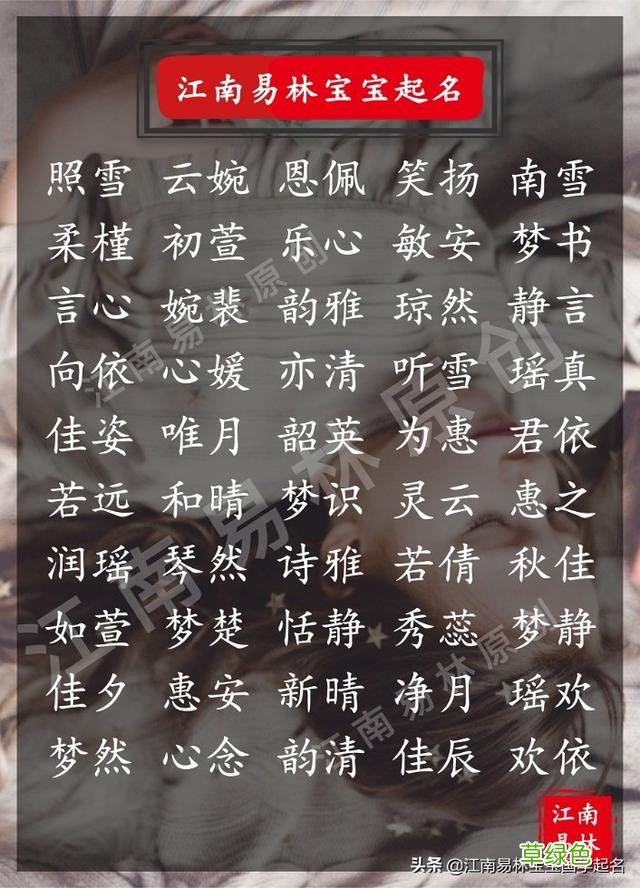 江南易林宝宝起名
照雪 云婉 恩佩 笑扬 南雪
柔槿 初萱 乐心 敏安 梦书
言心 婉裴 韵雅 琼然 静言
向依 心媛 亦清 听雪 瑶真
佳姿 唯月 韶英 为惠 君依
若远 和晴 梦识 灵云 惠之
润瑶 琴然 诗雅 若倩 秋佳
如萱 梦楚 恬静 秀蕊 梦静
佳夕 惠安 新晴 净月 瑶欢
梦然 心念 韵清 佳辰 欢依
江南易林原创
江南易林原创
江南易林原创
江南
易林
草绿色
头条 @江南易林宝宝国学起名